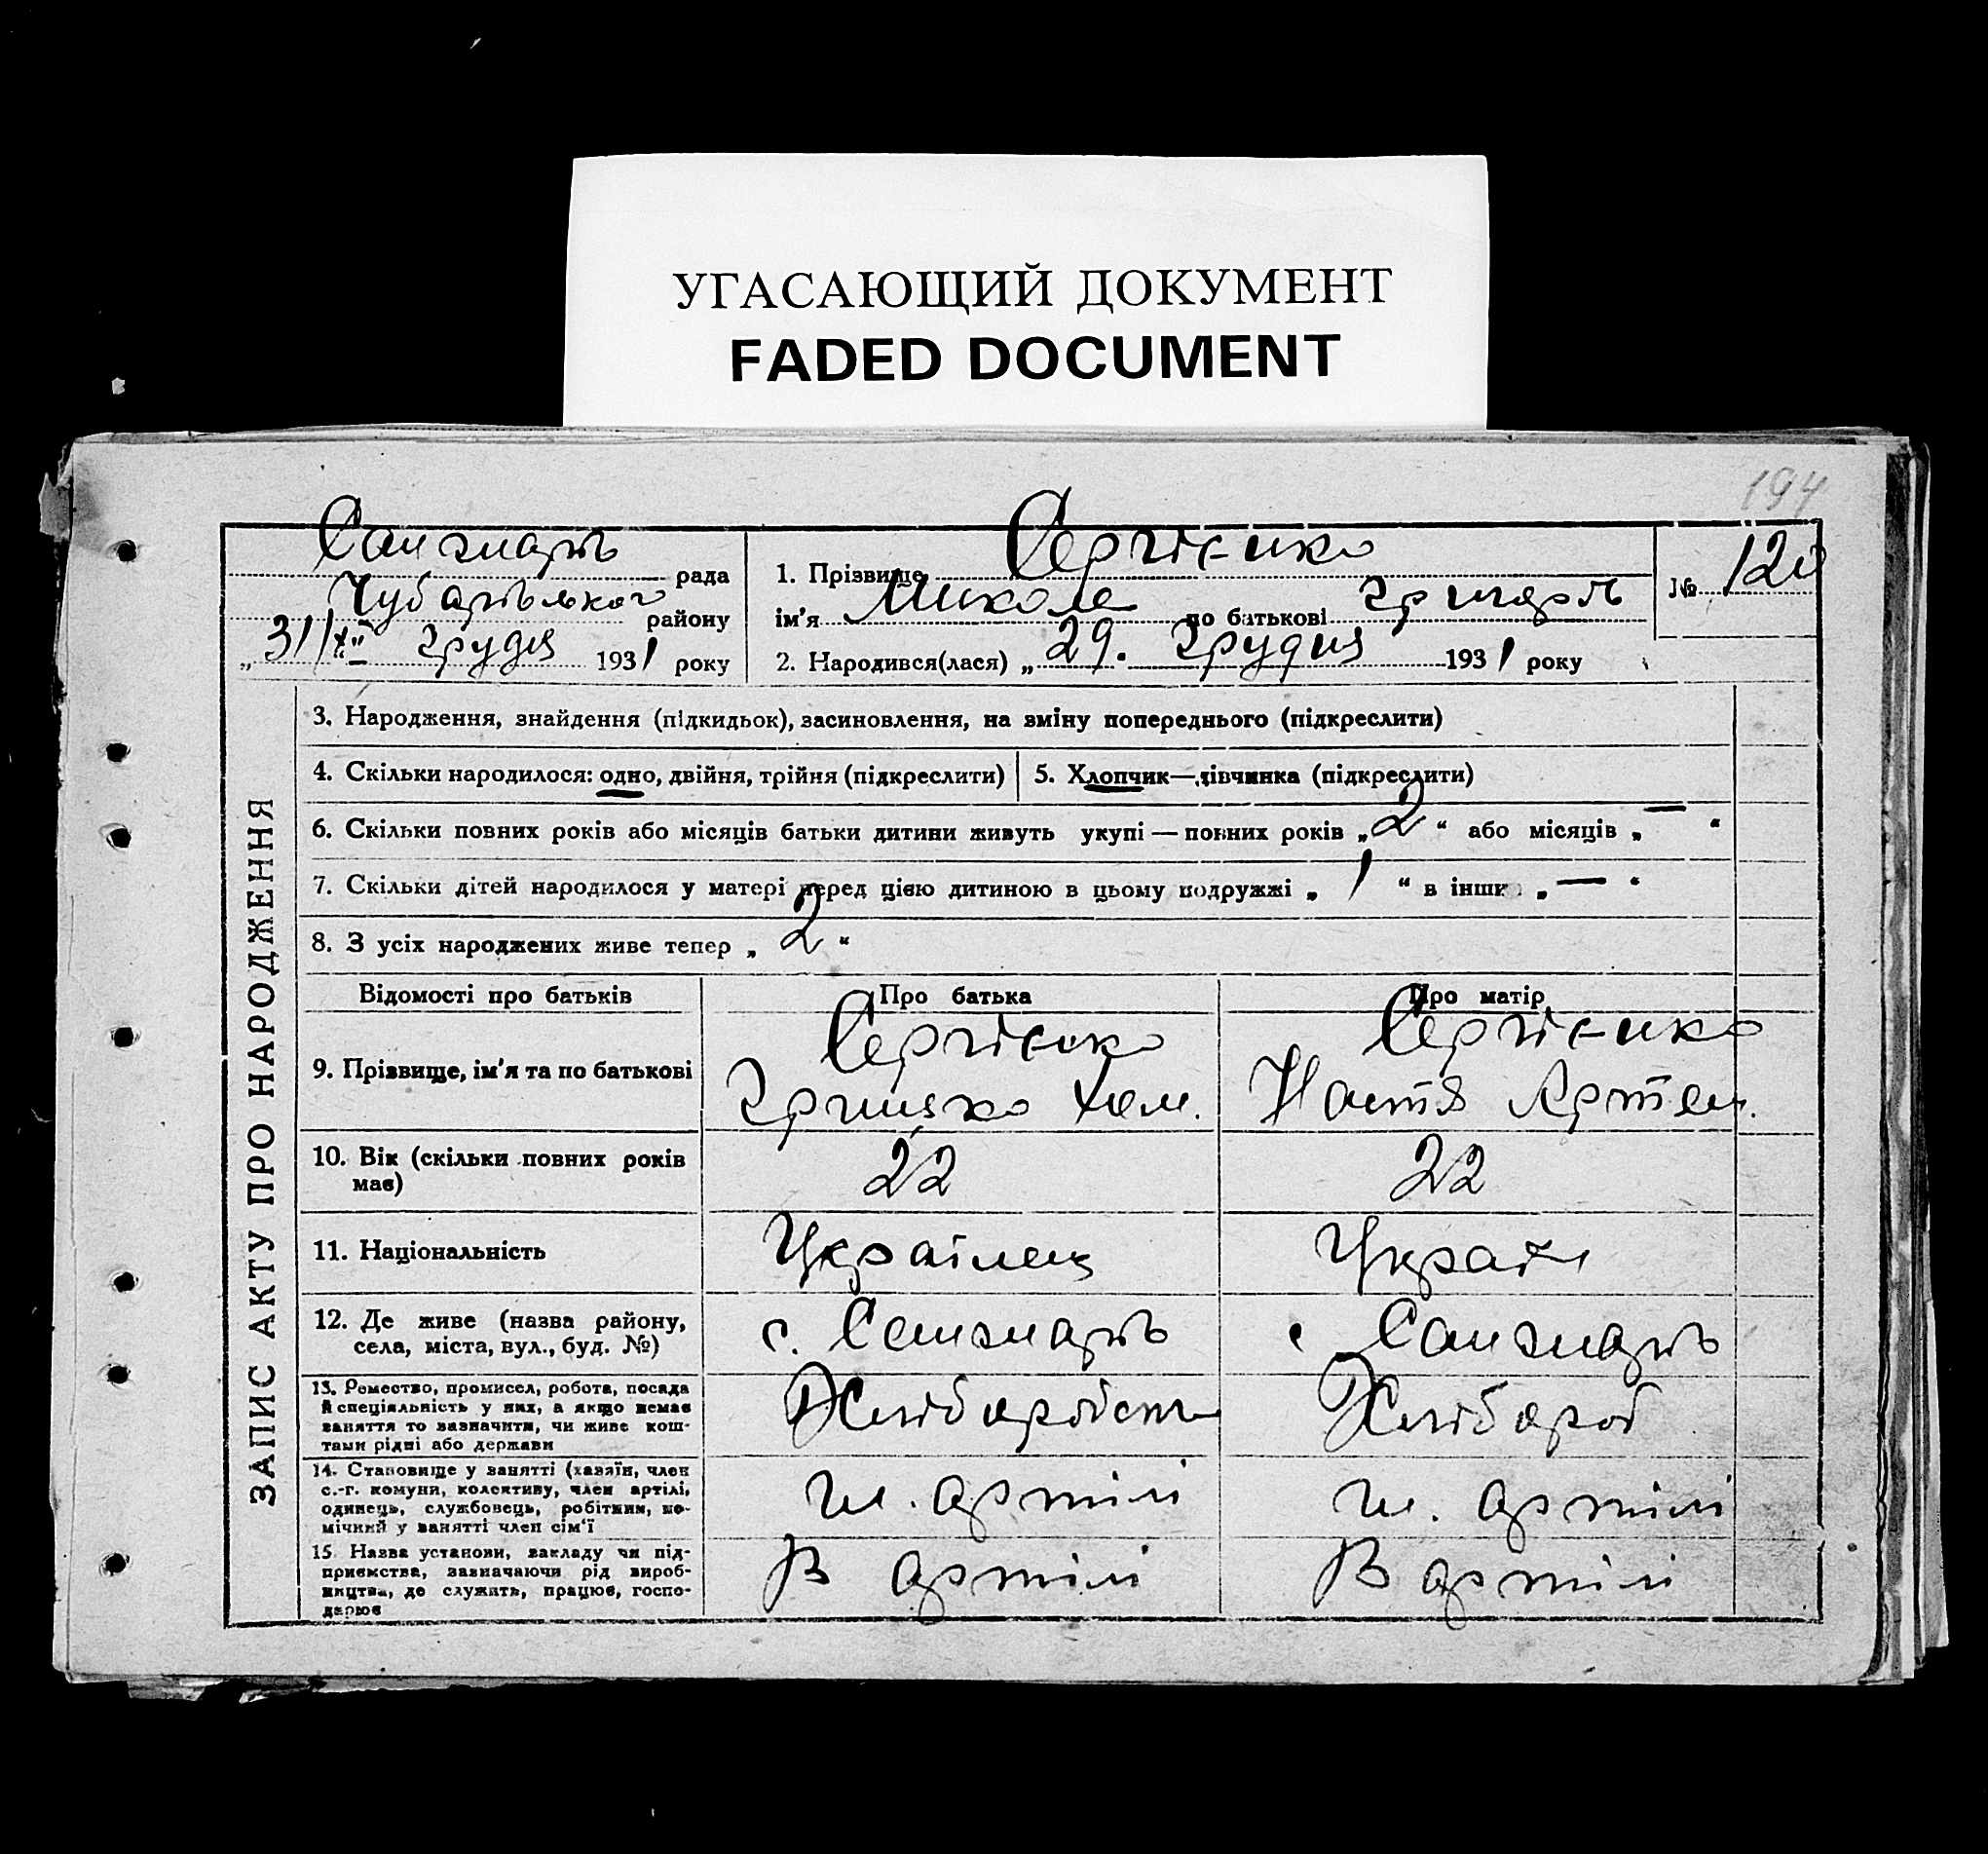 УГАСАЮЩИЙ ДОКУМЕНТ
FADED DOCUMENT
194
ЗАПИС АКТУ ПРО НАРОДЖЕННЯ
рада
району
„31/XII Грудня 1931 року
1. Прізвище Сергієнко
ім'я Микола по батькові
2. Народився(лася) „29. Грудня 1931 року
№
3. Народження, знайдення (підкидьок), засиновлення, на зміну попереднього (підкреслити)
4. Скільки народилося: одно, двійня, трійня (підкреслити)
5. Хлопчик—дівчинка (підкреслити)
6. Скільки повних років або місяців батьки дитини живуть укупі — повних років „2“ або місяців „—“
7. Скільки дітей народилося у матері перед цією дитиною в цьому подружжі „1“ в інших „—“
8. З усіх народжених живе тепер „2“
Відомості про батьків
Про батька
Про матір
9. Прізвище, ім'я та по батькові
Сергієнко
Грицько Хом.
Сергієнко
Настя Артем.
10. Вік (скільки повних років
має)
22
22
11. Національність
Українец
Украін
12. Де живе (назва району,
села, міста, вул., буд. №)
с.
с
13. Ремество, промисел, робота, посада
й спеціяльність у них, а якщо немає
заняття то зазначити, чи живе кош-
тами рідні або держави
Хлібороб
14. Становище у занятті (хазяїн, член
с.-г. комуни, колективу, член артілі,
одинець, службовець, робітник, по-
мічний у занятті член сім'ї
чл. артілі
чл. артілі
15. Назва установи, закладу чи під-
приємства, зазначаючи рід вироб-
ництва, де служить, працює, госпо-
дарює
В артілі
В артілі